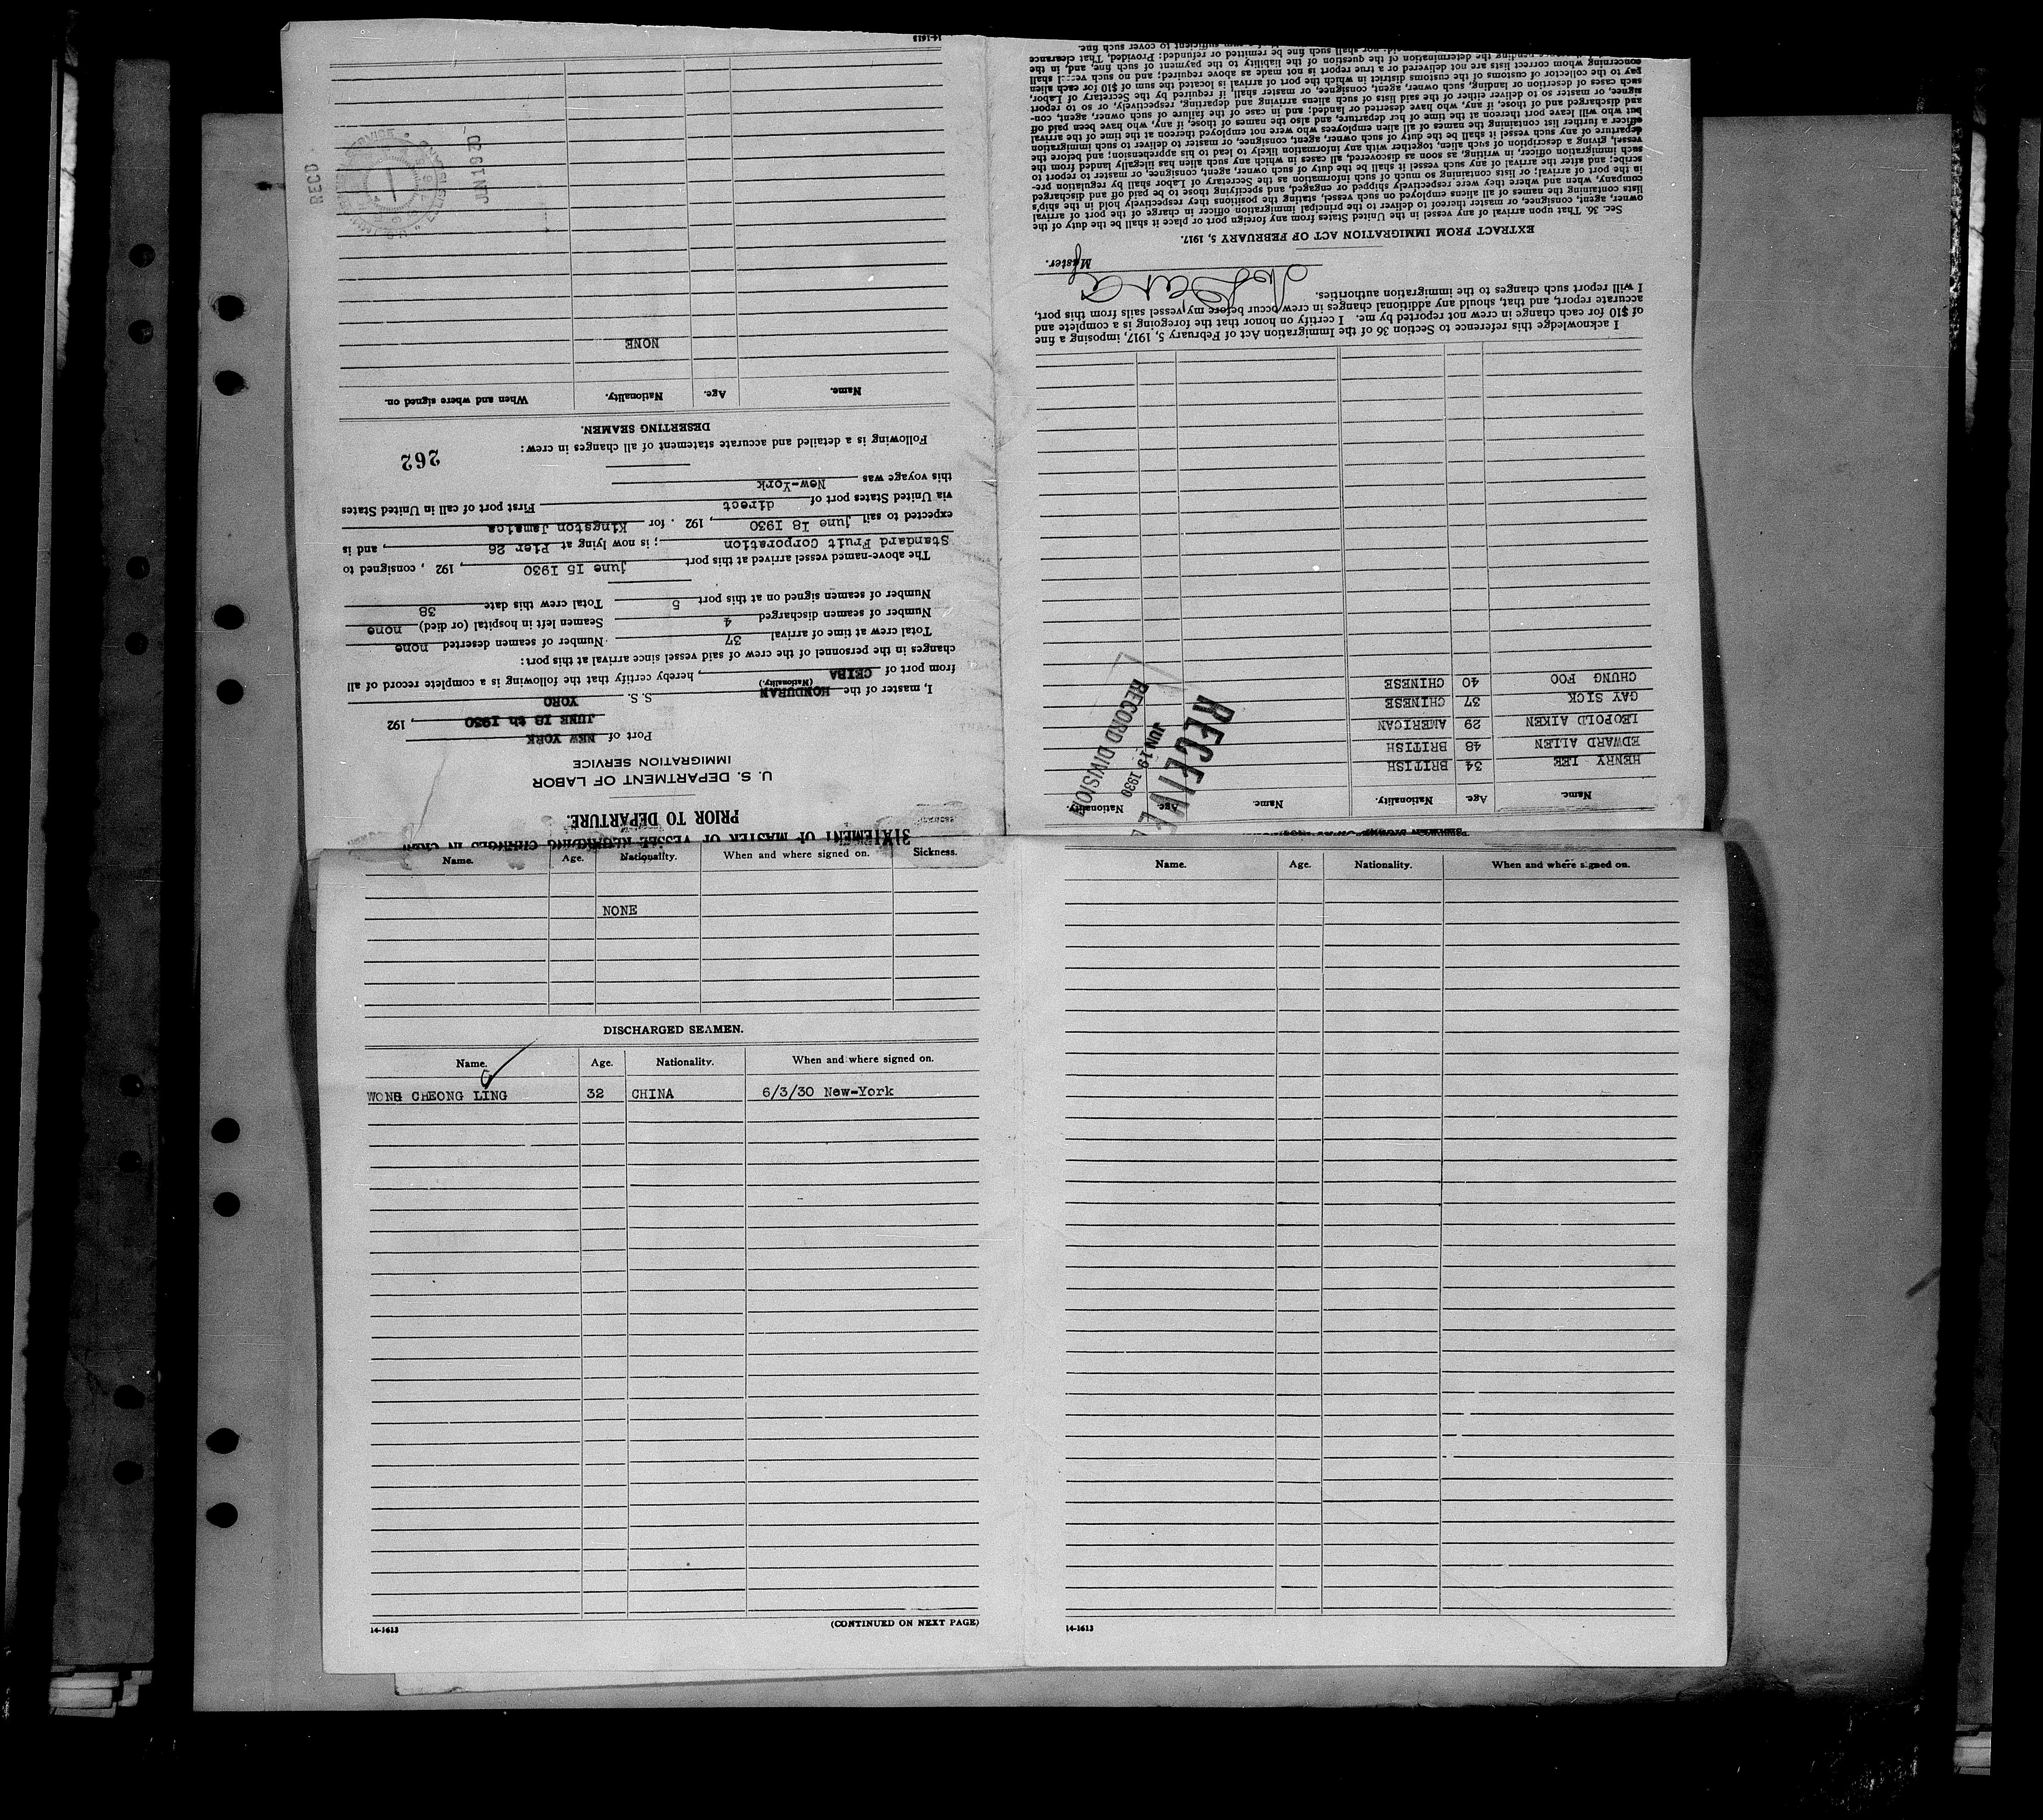 STATEMENT OF MASTER OF VESSEL REGARDING CHANGES IN CREW
PRIOR TO DEPARTURE.
U. S. DEPARTMENT OF LABOR
IMMIGRATION SERVICE
Port of NEW YORK
JUNE 18 th 1930, 192
I, master of the HONDURAN S. S. YORO
(Nationality.)
from port of CEIBA, hereby certify that the following is a complete record of all
changes in the personnel of the crew of said vessel since arrival at this port:
Total crew at time of arrival 37 Number of seamen deserted none
Number of seamen discharged 4 Seamen left in hospital (or died) none
Number of seamen signed on at this port 5 Total crew this date 38
The above-named vessel arrived at this port June 15 1930, 192 , consigned to
Standard Fruit Corporation; is now lying at Pier 26, and is
expected to sail June 18 1930, 192 . for Kingston Jamaica
via United States port of direct First port of call in United States
this voyage was New-York
262
Following is a detailed and accurate statement of all changes in crew:
DESERTING SEAMEN.
Name. Age. Nationality. When and where signed on.
NONE
RECD
JUN 18 30
14-1613
Name. Age. Nationality. Name. Age. Nationality.
HENRY LEE 34 BRITISH
EDWARD ALLEN 48 BRITISH
LEOPOLD AIKEN 29 AMERICAN
GAY SICK 37 CHINESE
CHUNG FOO 40 CHINESE
RECEIVED
JUN 19 1930
RECORD DIVISION
I acknowledge this reference to Section 36 of the Immigration Act of February 5, 1917, imposing a fine
of $10 for each change in crew not reported by me. I certify on honor that the foregoing is a complete and
accurate report, and that, should any additional changes in crew occur before my vessel sails from this port,
I will report such changes to the immigration authorities.
Master.
EXTRACT FROM IMMIGRATION ACT OF FEBRUARY 5, 1917.
Sec. 36. That upon arrival of any vessel in the United States from any foreign port or place it shall be the duty of the
owner, agent, consignee, or master thereof to deliver to the principal immigration officer in charge of the port of arrival
lists containing the names of all aliens employed on such vessel, stating the positions they respectively hold in the ship's
company, when and where they were respectively shipped or engaged, and specifying those to be paid off and discharged
in the port of arrival; or lists containing so much of such information as the Secretary of Labor shall by regulation pre-
scribe; and after the arrival of any such vessel it shall be the duty of such owner, agent, consignee, or master to report to
such immigration officer, in writing, as soon as discovered, all cases in which any such alien has illegally landed from the
vessel, giving a description of such alien, together with any information likely to lead to his apprehension; and before the
departure of any such vessel it shall be the duty of such owner, agent, consignee, or master to deliver to such immigration
officer a further list containing the names of all alien employees who were not employed thereon at the time of the arrival
but who will leave port thereon at the time of her departure, and also the names of those, if any, who have been paid off
and discharged and of those, if any, who have deserted or landed; and in case of the failure of such owner, agent, con-
signee, or master so to deliver either of the said lists of such aliens arriving and departing, respectively, or so to report
such cases of desertion or landing, such owner, agent, consignee, or master shall, if required by the Secretary of Labor,
pay to the collector of customs of the customs district in which the port of arrival is located the sum of $10 for each alien
concerning whom correct lists are not delivered or a true report is not made as above required; and no such vessel shall
pending the determination of the question of the liability to the payment of such fine, and, in the
nor shall such fine be remitted or refunded: Provided, That clearance
sufficient to cover such fine.
Name. Age. Nationality. When and where signed on. Sickness.
NONE
DISCHARGED SEAMEN.
Name. Age. Nationality. When and where signed on.
WONG CHEONG LING 32 CHINA 6/3/30 New-York
(CONTINUED ON NEXT PAGE)
14-1613
Name. Age. Nationality. When and where signed on.
14-1613